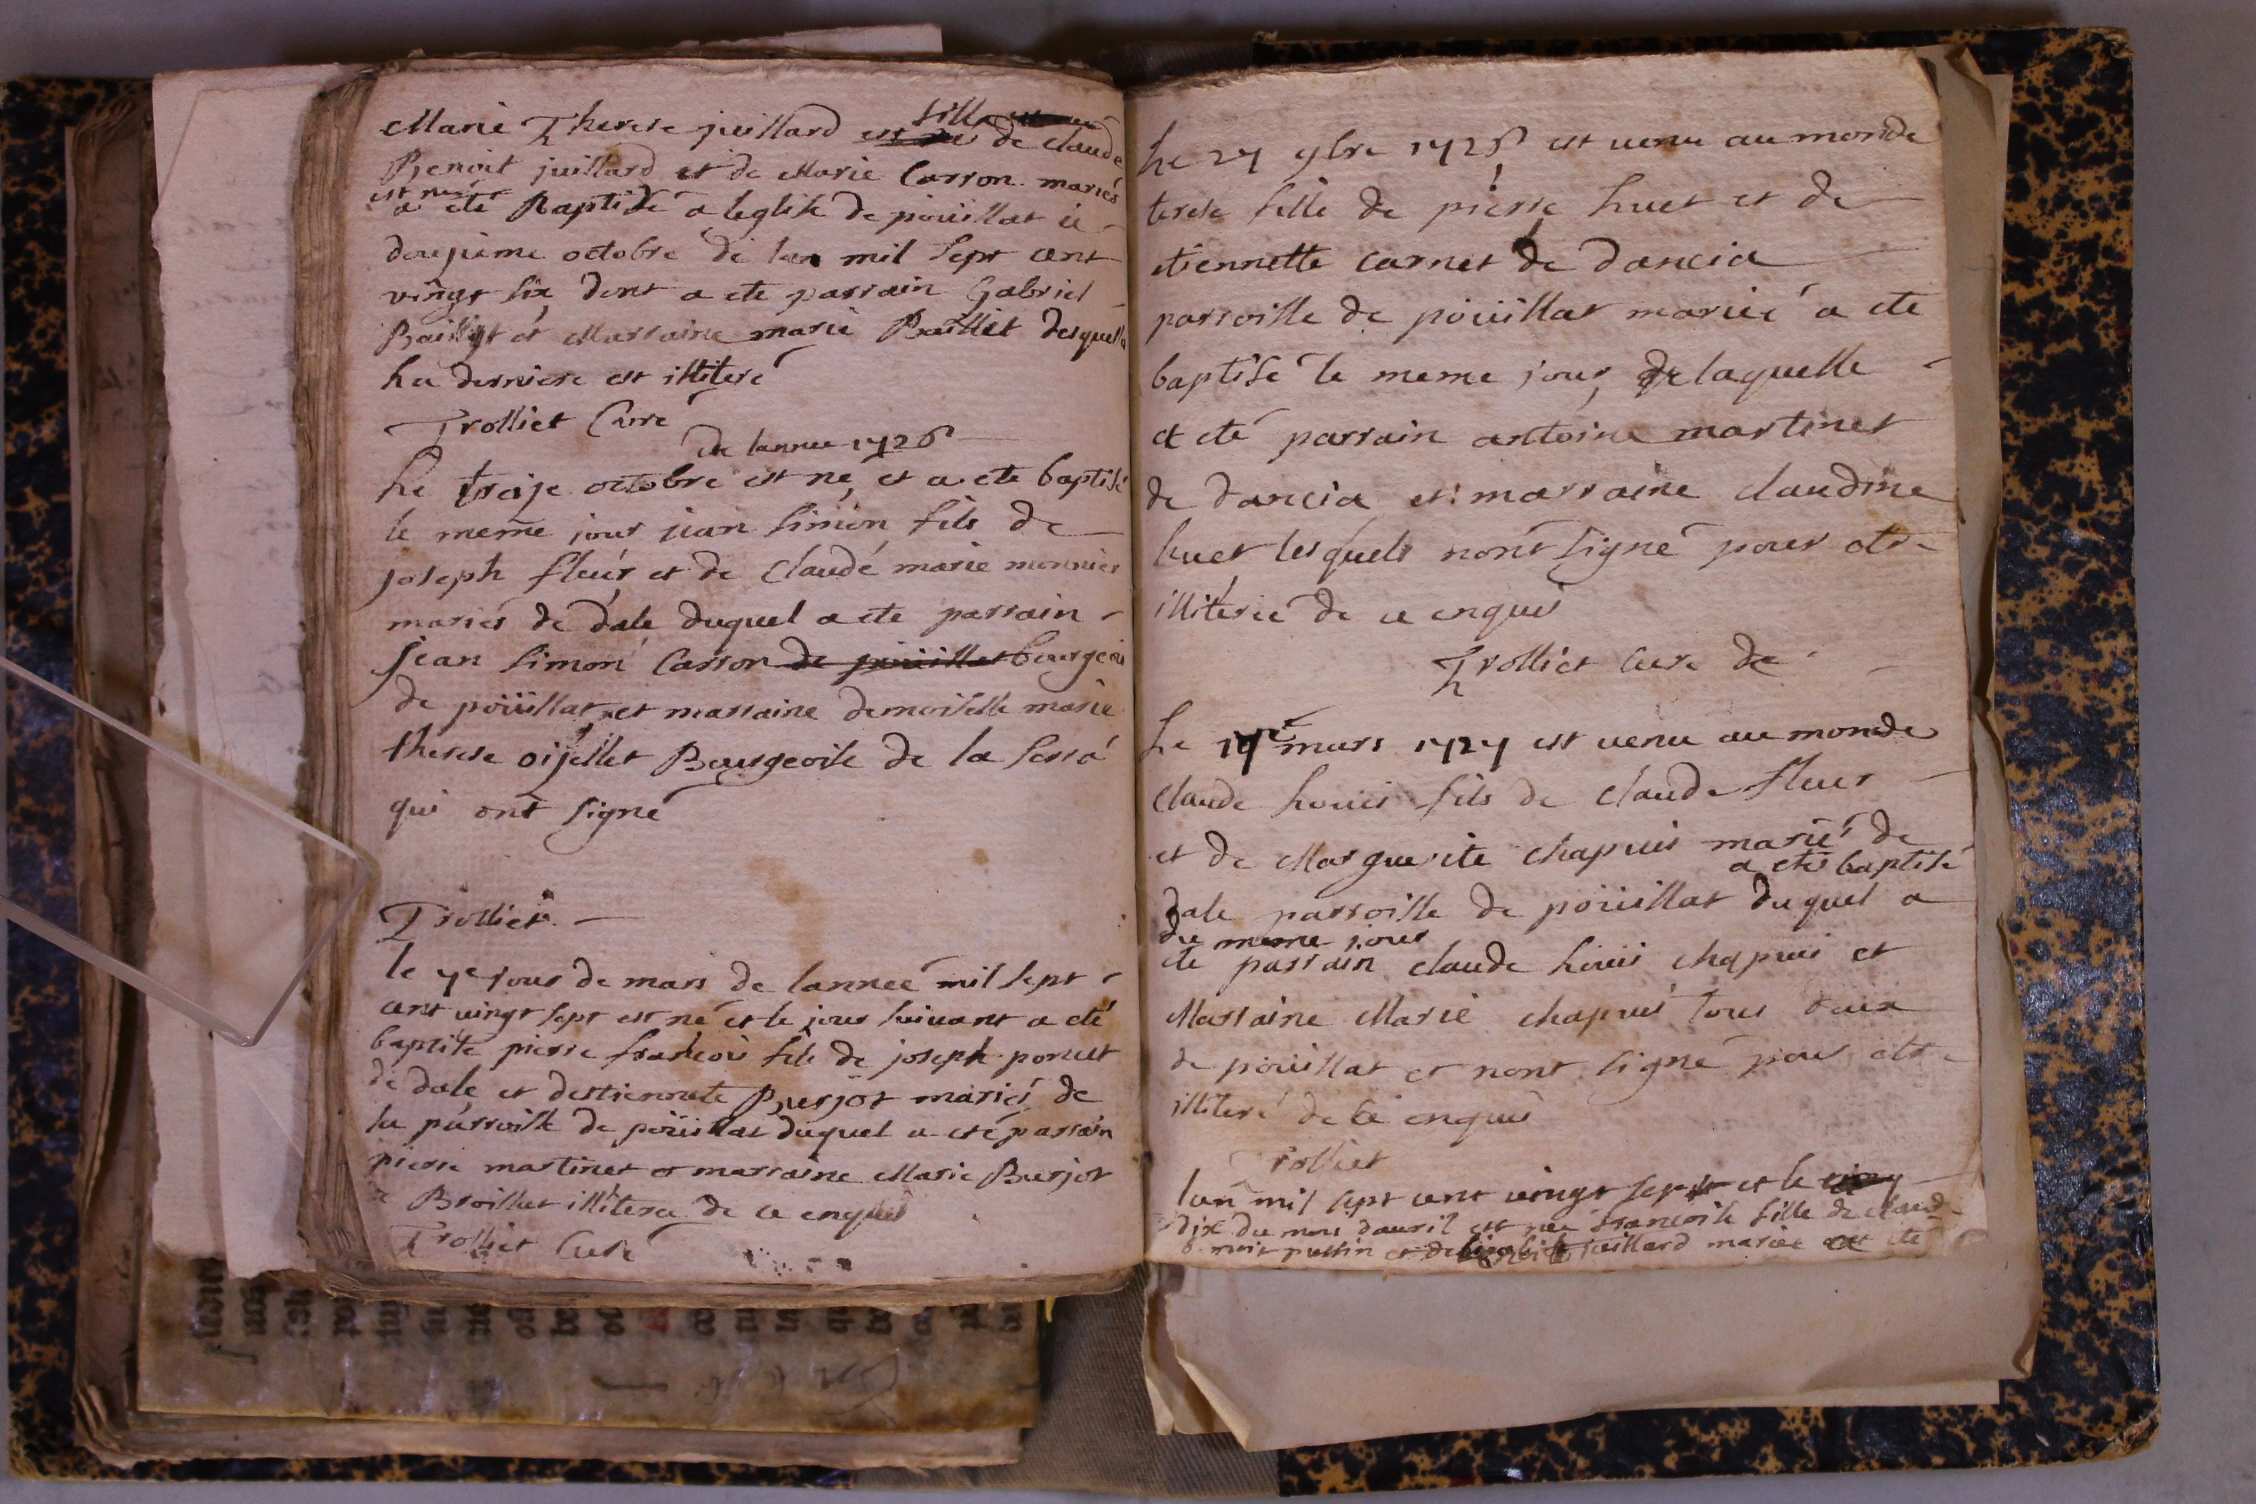 Marie Therese juillard fille de claude
Benoit juillard et de Marie Carron mariés
est née
a été Baptisé a leglise de poüillat le
douzieme octobre de lan mil sept cent
vingt six dont a ete parrain Gabriel
et Marraine marie desquels
La derniere est illiteré
Trolliet Curé
de lannee 1726
Le treize octobre est né et a ete baptisé
le meme jour jean simon fils de
joseph fleur et de Claude marie monnier
mariés de dale duquel a ete parrain
jean simon Carron de poüillat bourgeois
de poüillat et marraine demoiselle marie
therese oijellet Bourgeoise de la
qui ont signé
Trolliet
le 7e jour de mars de lanneé mil sept
cent vingt sept est né et le jour suivant a eté
baptise pierre francois fils de joseph poncet
de dale et destiennete Burjot mariés de
la parroisse de poüillat duquel a eté parrain
pierre martinet et marraine Marie Burjot
de Broissiat illiteré de ce enquis
Trolliet Curé
Le 27 9bre 1726 est venu au monde
terese fille de pierre huet et de
etiennette carnet de dancia
parroisse de poüillat mariés a ete
baptisé le meme jour de laquelle
a eté parrain antoine martinet
de dancia et marraine claudine
huet lesquels nont signé pour etre
illiteré de ce enquis
Trolliet Curé de
Le mars 1727 est venu au monde
claude Louis fils de claude fleur
et de Marguerite chapuis mariés de
a eté baptisé
dale parroisse de poüillat duquel a
du meme jour
ete parrain claude Louis chapuis et
Marraine Marie chapuis tous deux
de poüillat et nont signé pour etre
illiteré de ce enquis
Trolliet
lan mil sept cent vingt sept et le
dix du mois dauril est née francoise fille de claude
et de juillard mariés a eté